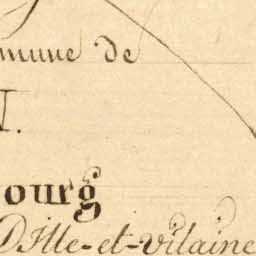 mmune de
N.
ourg
D'Ille-et-Vilaine